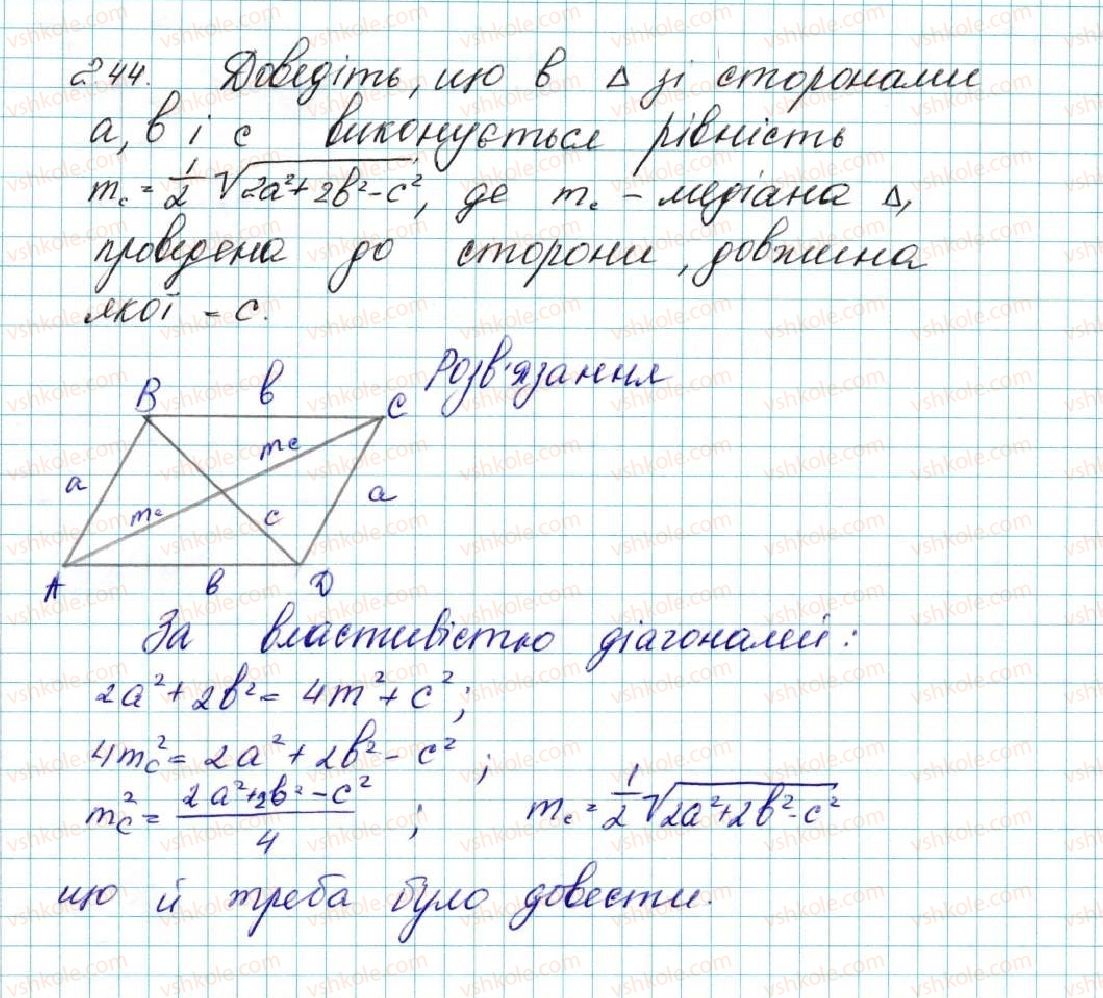 244. Доведіть, що в Δ зі сторонами
a, b і c виконується рівність
m_c = 1/2 √(2a²+2b²-c²), де m_c - медіана Δ,
проведена до сторони, довжина
якої - c.
Розв'язання
B b C
m_c
a a
m_c c
A b D
За властивістю діагоналей:
2a²+2b² = 4m²+c²;
4m_c² = 2a²+2b²-c²;
m_c² = (2a²+2b²-c²)/4; m_c = 1/2 √(2a²+2b²-c²)
що й треба було довести.